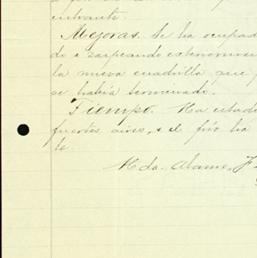 entrante.
Mejoras. Se ha ocupad
do e zarpeando exteriormen
la nueva cuadrilla que
se había terminado.
Tiempo. Ha estado
fuertes aires, & el frío ha
le
Hda. Alamo, F